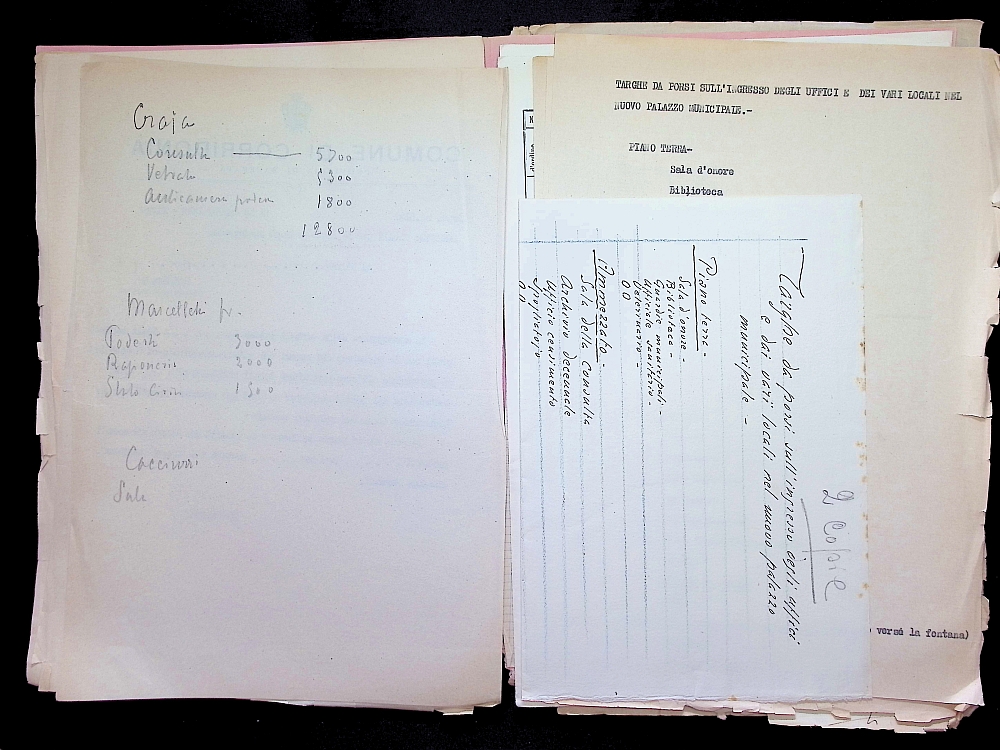 Graja
Consulta 5700
Vetrata 5300
Anticamera podestà 1800
12800
Marcelletti fr.
Podestà 3000
Ragioneria 2000
Stato Civile 1500
Sala
COMUNE DI CORRIDONIA
TARGHE DA PORSI SULL'INGRESSO DEGLI UFFICI E DEI VARI LOCALI NEL
NUOVO PALAZZO MUNICIPALE.-
PIANO TERRA-
Sala d'onore
Biblioteca
verso la fontana)
2 copie
Targhe da porsi sull'ingresso degli uffici
e dai vari locali nel nuovo palazzo
municipale -
Piano terra -
Sala d'onore -
Biblioteca -
Guardie municipali -
Ufficiale sanitario -
Veterinario -
00
Ammezzato -
Sala della Consulta
Archivio decennale
Ufficio censimento
Spogliatojo